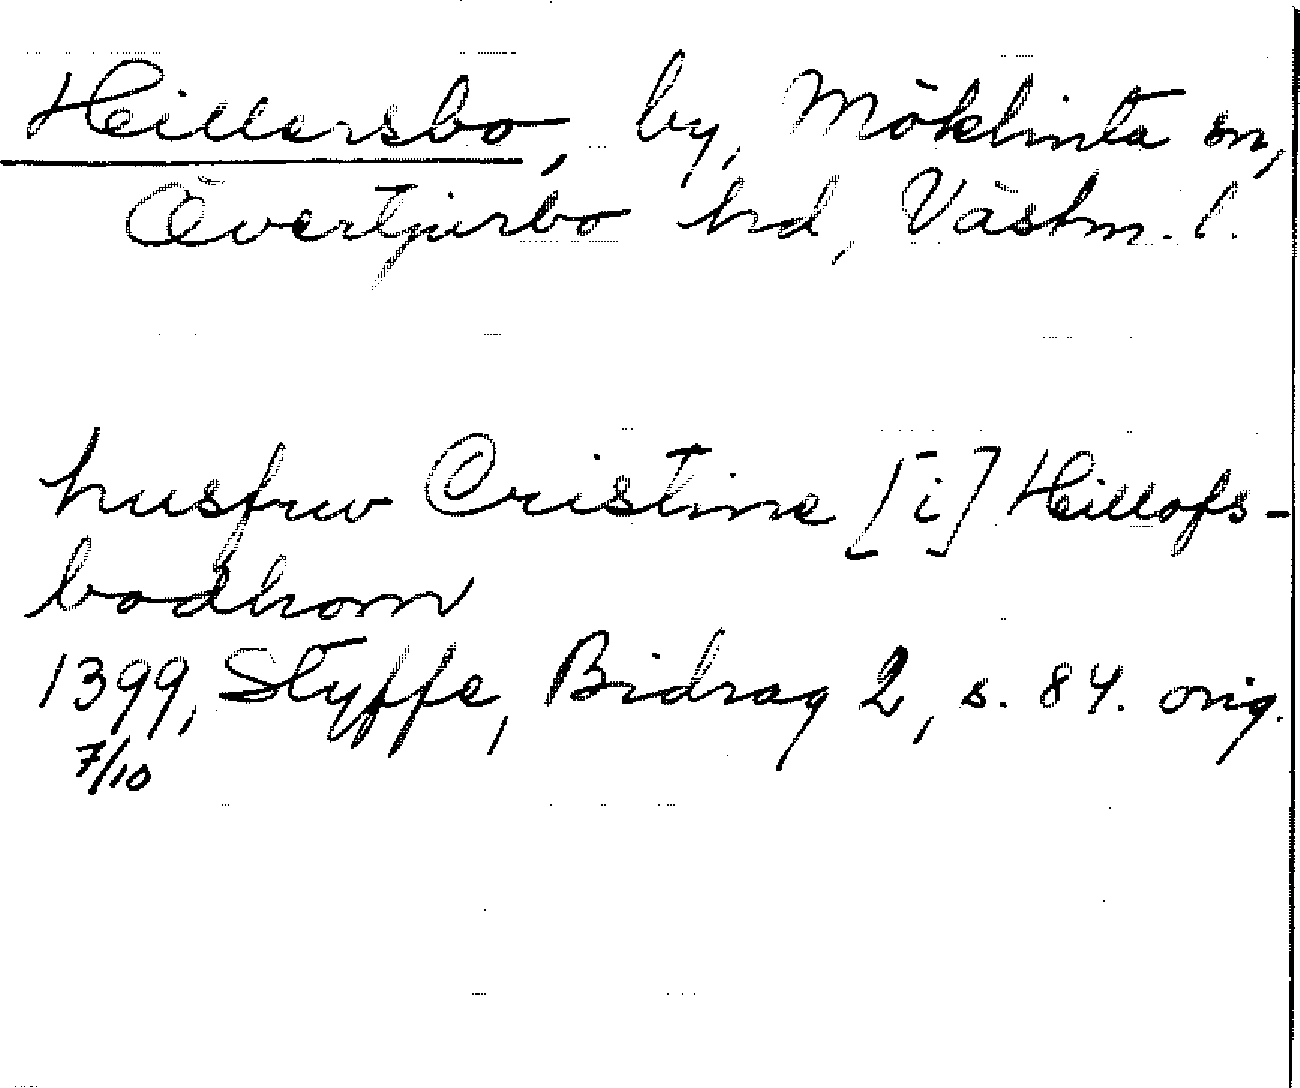 Hillersbo, by, Möklinta sn,
Övertjurbo hd, Västm. l.
husfrw Cristine [i] Hillofs-
bodhom
1399, Styffe, Bidrag 2, s. 84. orig.
7/10